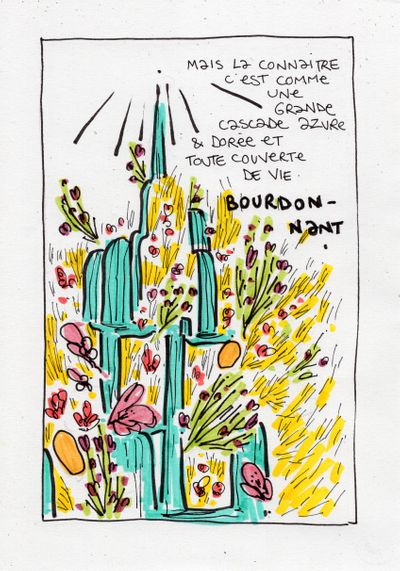 MAIS LA CONNAITRE
C'EST COMME
UNE
GRANDE
CASCADE AZURE
& DORÉE ET
TOUTE COUVERTE
DE VIE.
BOURDON-
NANT.